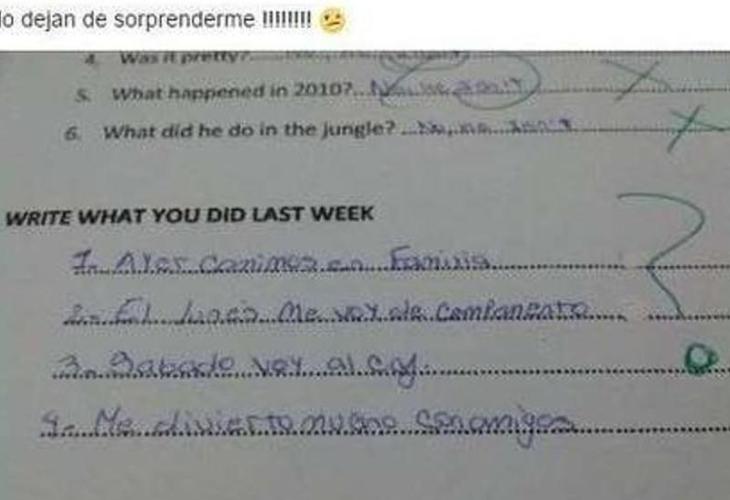 lo dejan de sorprenderme !!!!!!!!
4. Was it pretty?
5. What happened in 2010? No, he
6. What did he do in the jungle? No,
WRITE WHAT YOU DID LAST WEEK
1- Ayer comimos en Familia
2.- El lunes me voy de campamento
3- Sabado voy al
4- Me divierto mucho con amigos
?